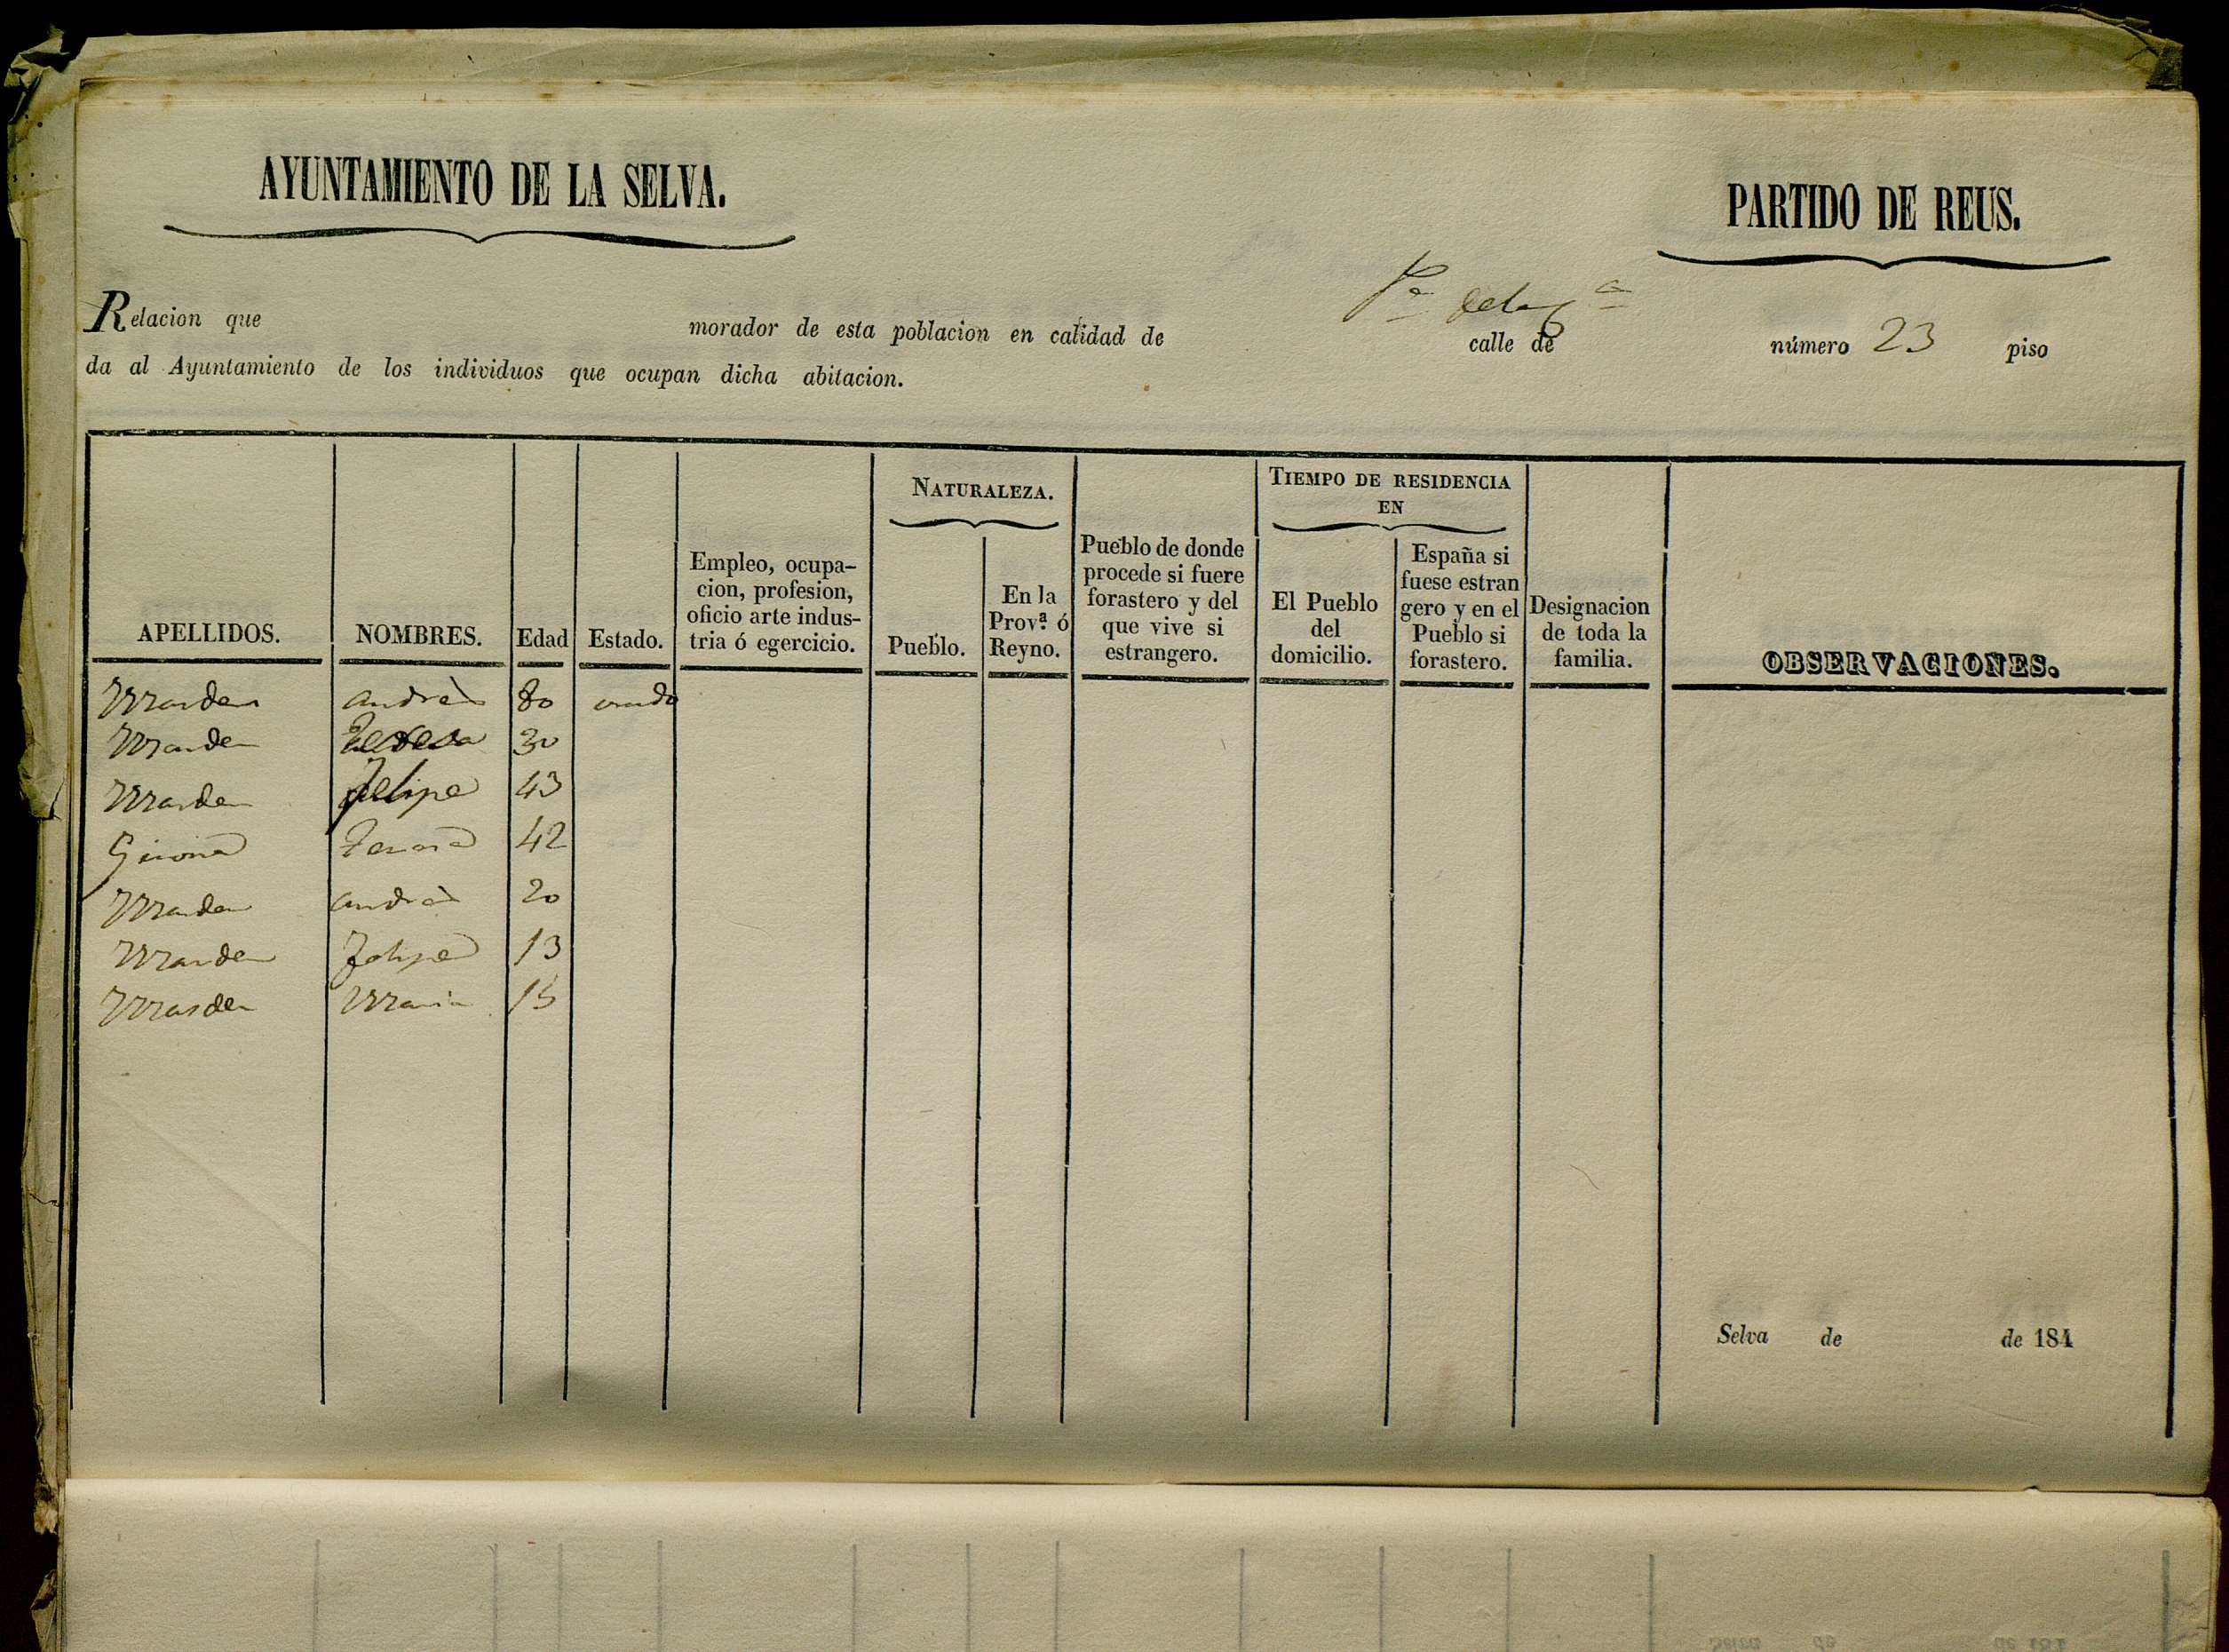 AYUNTAMIENTO DE LA SELVA.
PARTIDO DE REUS.
Relacion que morador de esta poblacion en calidad de calle de número 23 piso
da al Ayuntamiento de los individuos que ocupan dicha abitacion.
NATURALEZA.
TIEMPO DE RESIDENCIA
EN
APELLIDOS.
NOMBRES.
Edad
Estado.
Empleo, ocupa-
cion, profesion,
oficio arte indus-
tria ó egercicio.
Pueblo.
En la
Prov.ª ó
Reyno.
Pueblo de donde
procede si fuere
forastero y del
que vive si
estrangero.
El Pueblo
del
domicilio.
España si
fuese estran
gero y en el
Pueblo si
forastero.
Designacion
de toda la
familia.
OBSERVACIONES.
Masdeu Andrès 80
Masdeu Teresa 30
Masdeu Felipe 43
Girona Teresa 42
Masdeu Andrès 20
Masdeu Felipe 13
Masdeu Maria 15
Selva de de 184